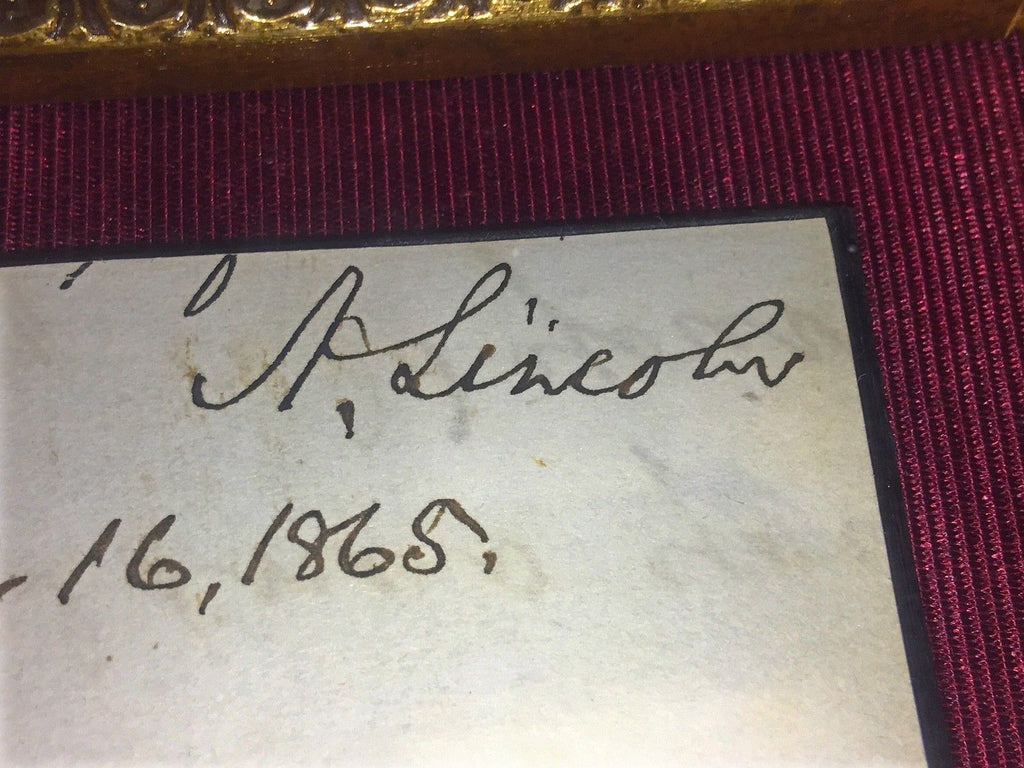 A. Lincoln
16, 1865.